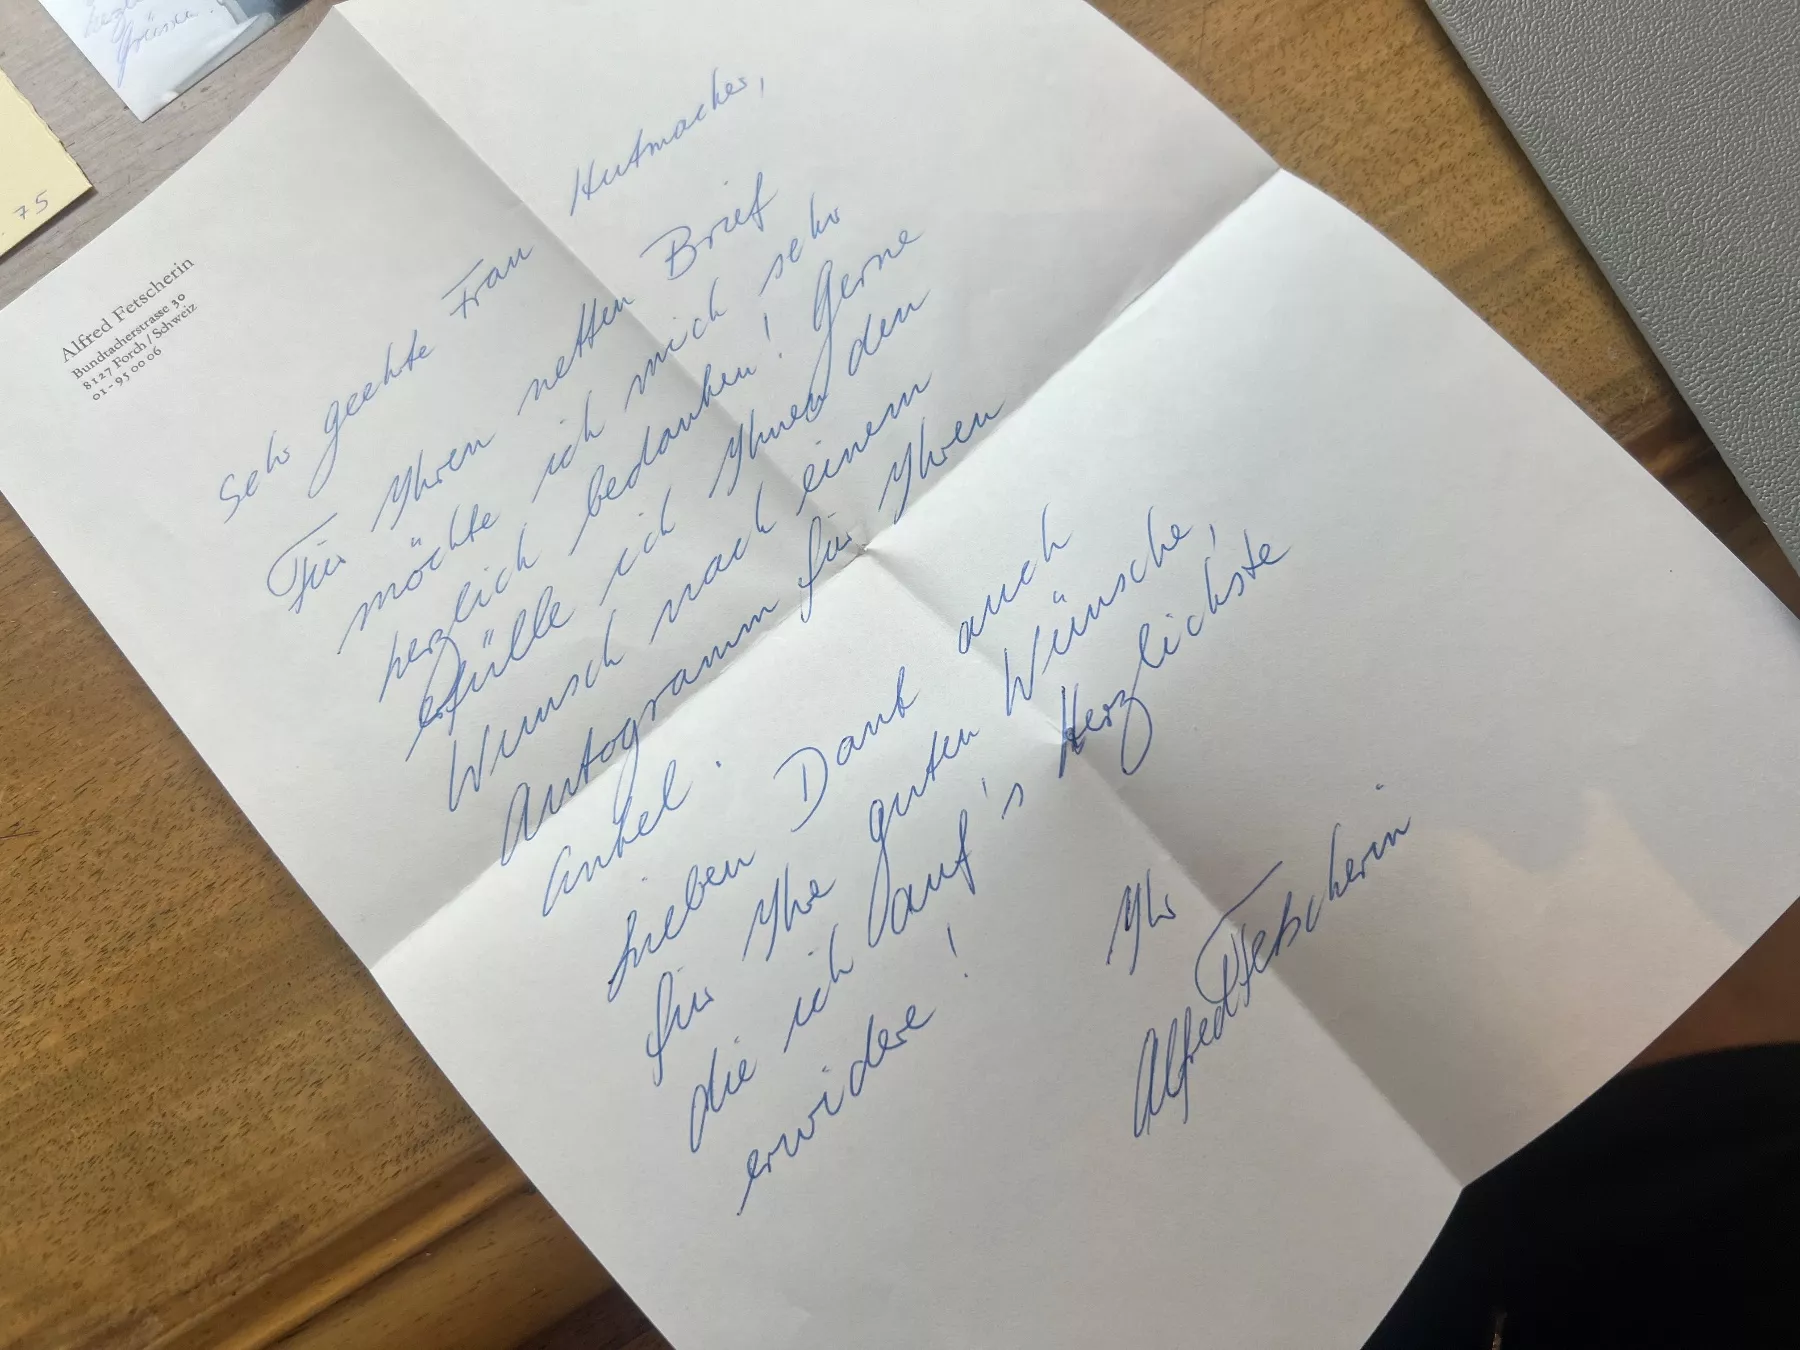 Grüsse.
75
Alfred Fetscherin
Bundtacherstrasse 30
8127 Forch / Schweiz
01 - 95 00 06
Sehr geehrte Frau Hutmacher,
Für Ihren netten Brief
möchte ich mich sehr
herzlich bedanken! Gerne
erfülle ich Ihnen den
Wunsch nach einem
Autogramm für Ihren
Enkel.
Lieben Dank auch
für Ihre guten Wünsche,
die ich auf's Herzlichste
erwidere!
Ihr
Alfred Fetscherin